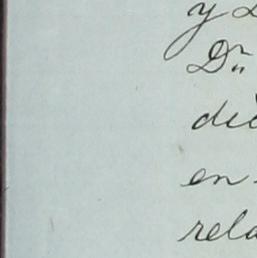 y
Dr.
die
en
rela